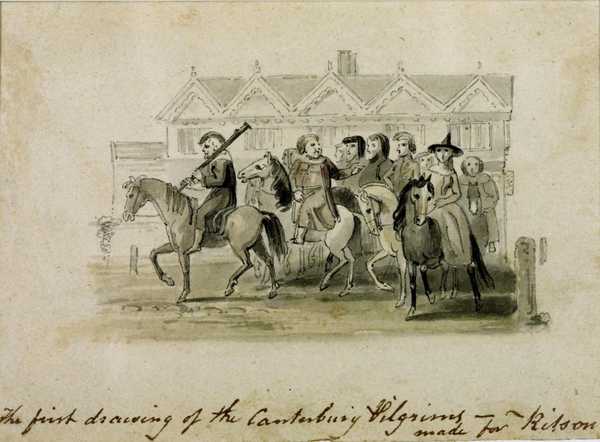 The first drawing of the Canterbury Pilgrims — made for Ritson